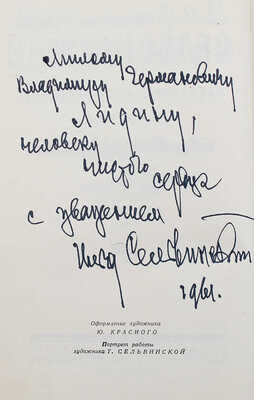 Милому
Владимиру Германовичу
Лидину,
человеку
чистого сердца
с уважением
Илья Сельвинский
1961.
Оформление художника
Ю. КРАСНОГО
Портрет работы
художника Т. СЕЛЬВИНСКОЙ